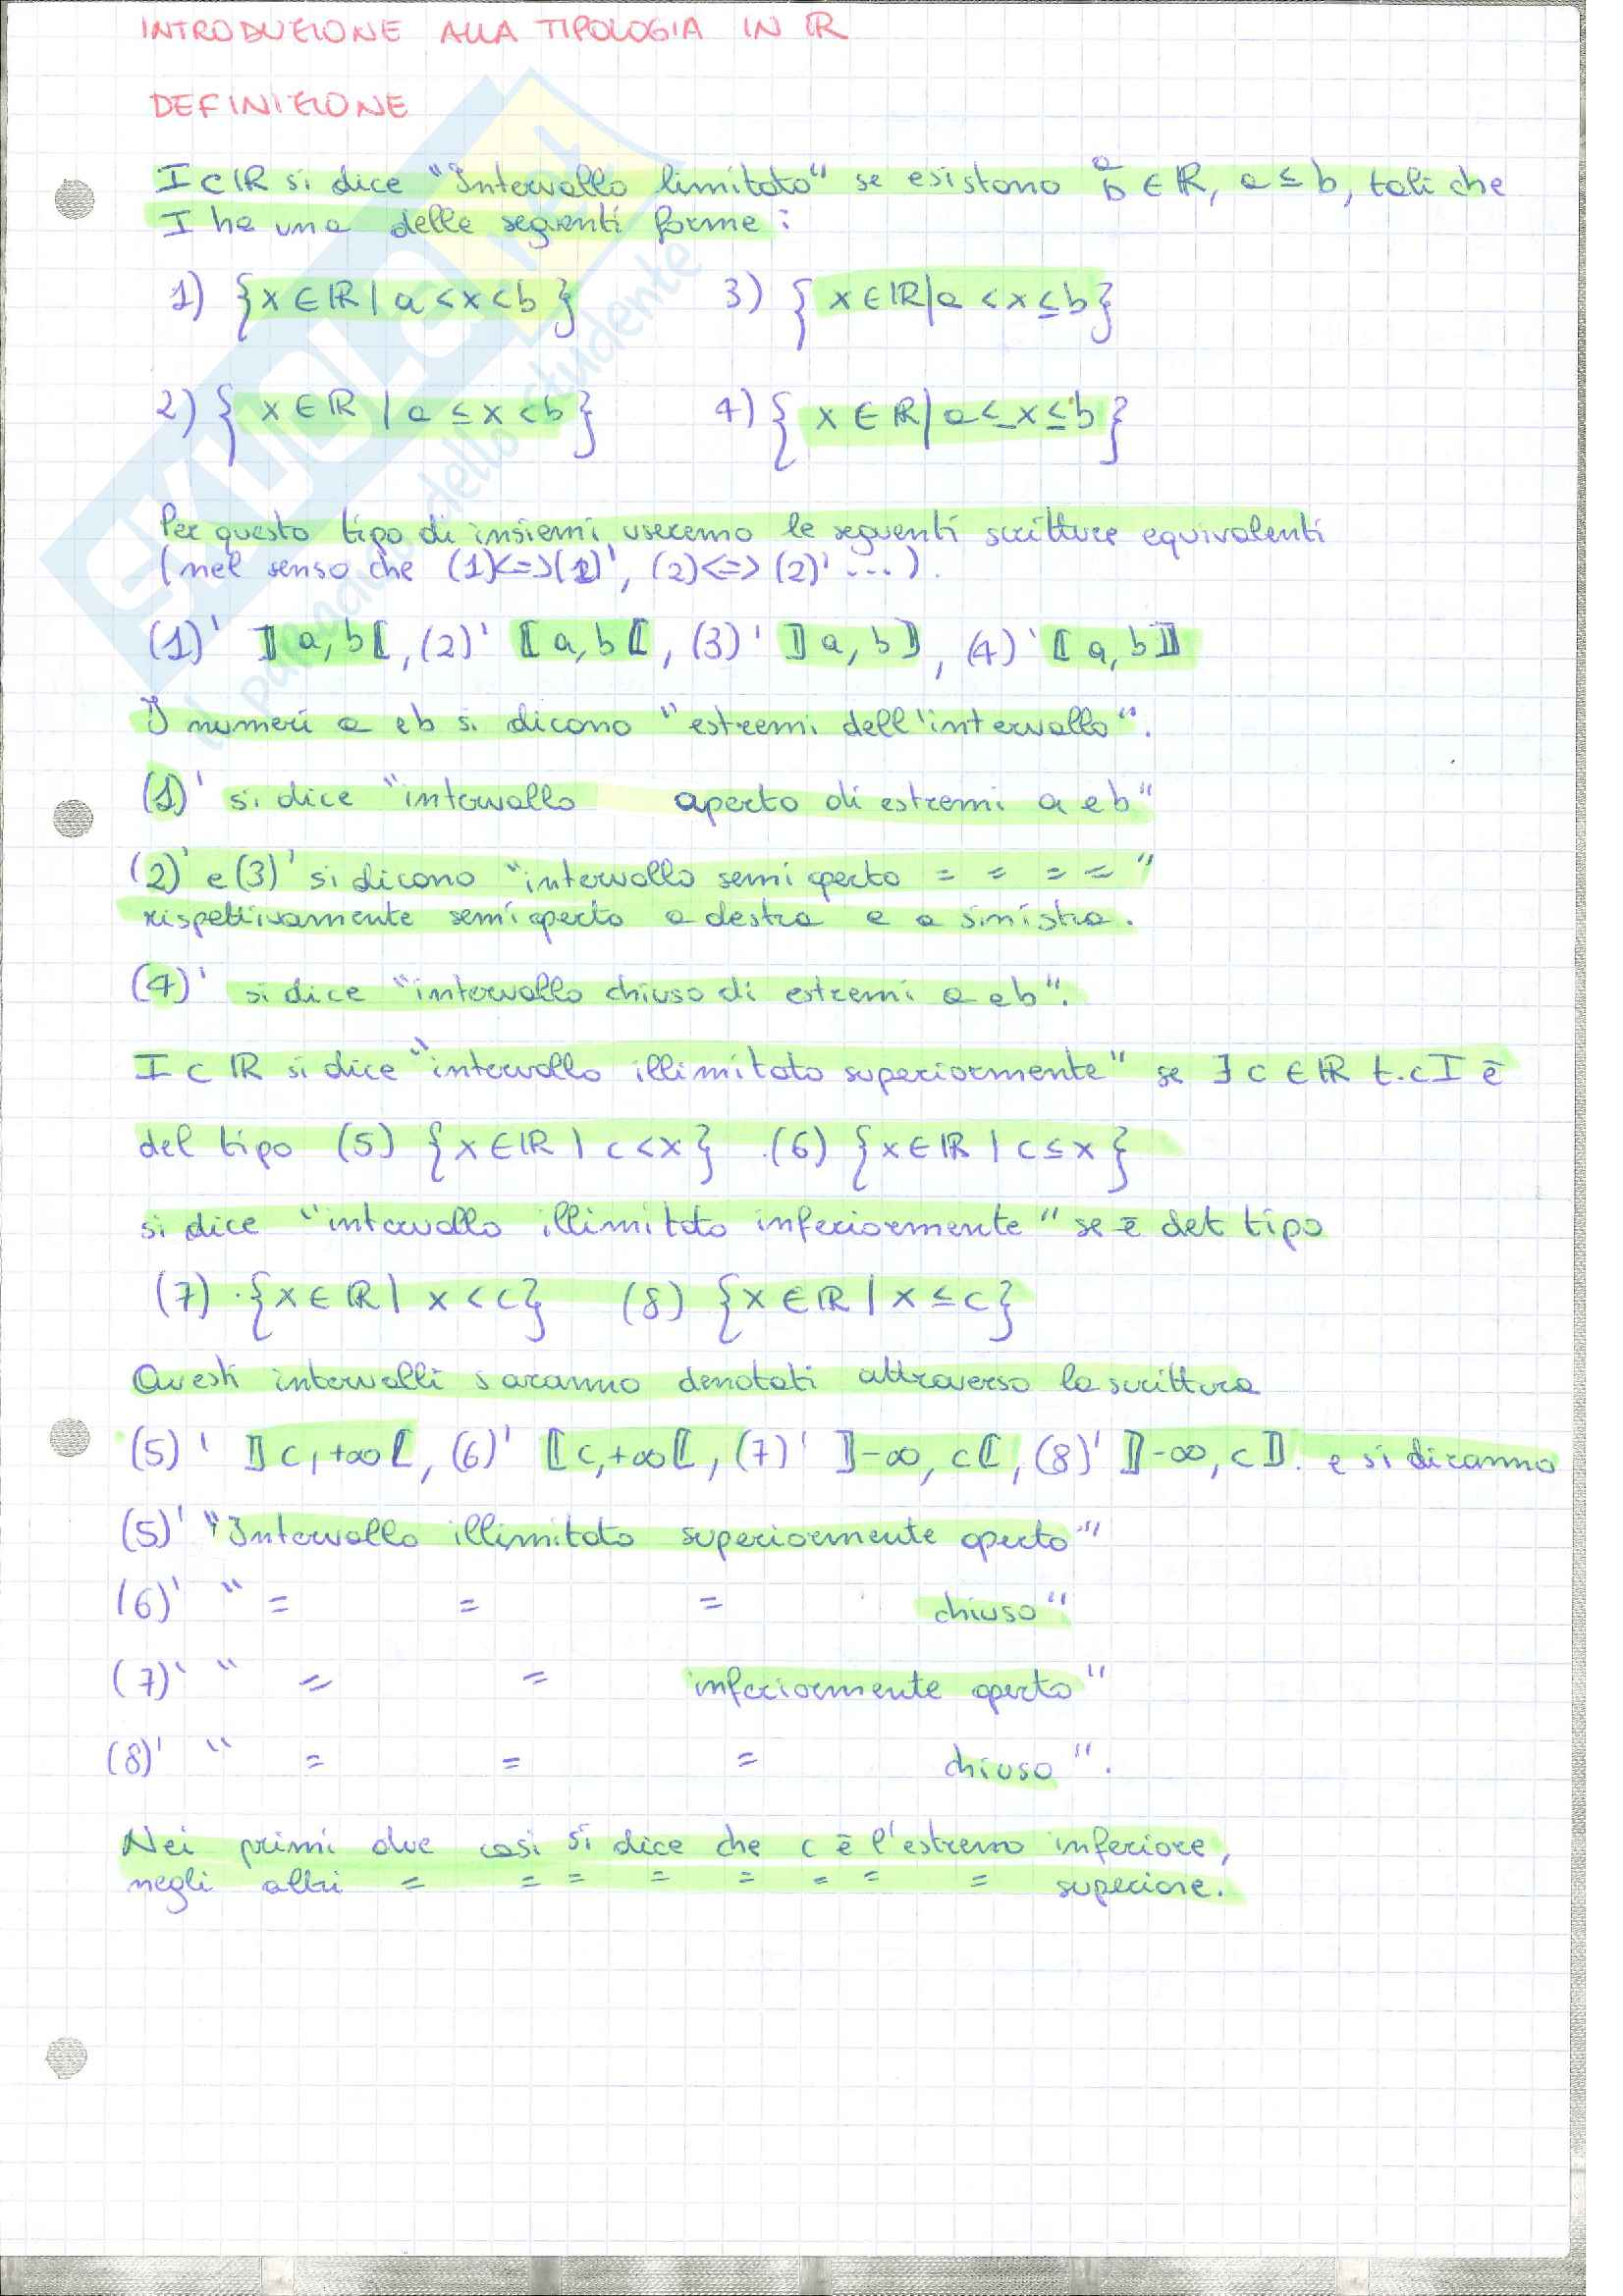 INTRODUZIONE ALLA TIPOLOGIA IN ℝ
DEFINIZIONE
I⊂ℝ si dice "Intervallo limitato" se esistono a b ∈ ℝ, a ≤ b, tali che
I ha una delle seguenti forme:
1) {x ∈ ℝ | a < x < b} 3) {x ∈ ℝ | a < x ≤ b}
2) {x ∈ ℝ | a ≤ x < b} 4) {x ∈ ℝ | a ≤ x ≤ b}
Per questo tipo di insiemi useremo le seguenti scritture equivalenti
(nel senso che (1)<=>(1)', (2)<=>(2)' ...).
(1)' ⟧a, b⟦, (2)' ⟦a, b⟦, (3)' ⟧a, b⟧, (4)' ⟦a, b⟧
I numeri a e b si dicono "estremi dell'intervallo".
(1)' si dice "intervallo aperto di estremi a e b"
(2)' e (3)' si dicono "intervallo semiaperto = = = = "
rispettivamente semiaperto a destra e a sinistra.
(4)' si dice "intervallo chiuso di estremi a e b".
I ⊂ ℝ si dice "intervallo illimitato superiormente" se ∃ c ∈ ℝ t.c I è
del tipo (5) {x ∈ ℝ | c < x} (6) {x ∈ ℝ | c ≤ x}
si dice "intervallo illimitato inferiormente" se è del tipo
(7) {x ∈ ℝ | x < c} (8) {x ∈ ℝ | x ≤ c}
Questi intervalli saranno denotati attraverso la scrittura
(5)' ⟧c, +∞⟦, (6)' ⟦c, +∞⟦, (7)' ⟧-∞, c⟦, (8)' ⟧-∞, c⟧. e si diranno
(5)' "Intervallo illimitato superiormente aperto"
(6)' " = = = chiuso"
(7)' " = = inferiormente aperto"
(8)' " = = = chiuso".
Nei primi due casi si dice che c è l'estremo inferiore,
negli altri = = = = = = = = superiore.
SKUOLA.net
il paradiso dello studente